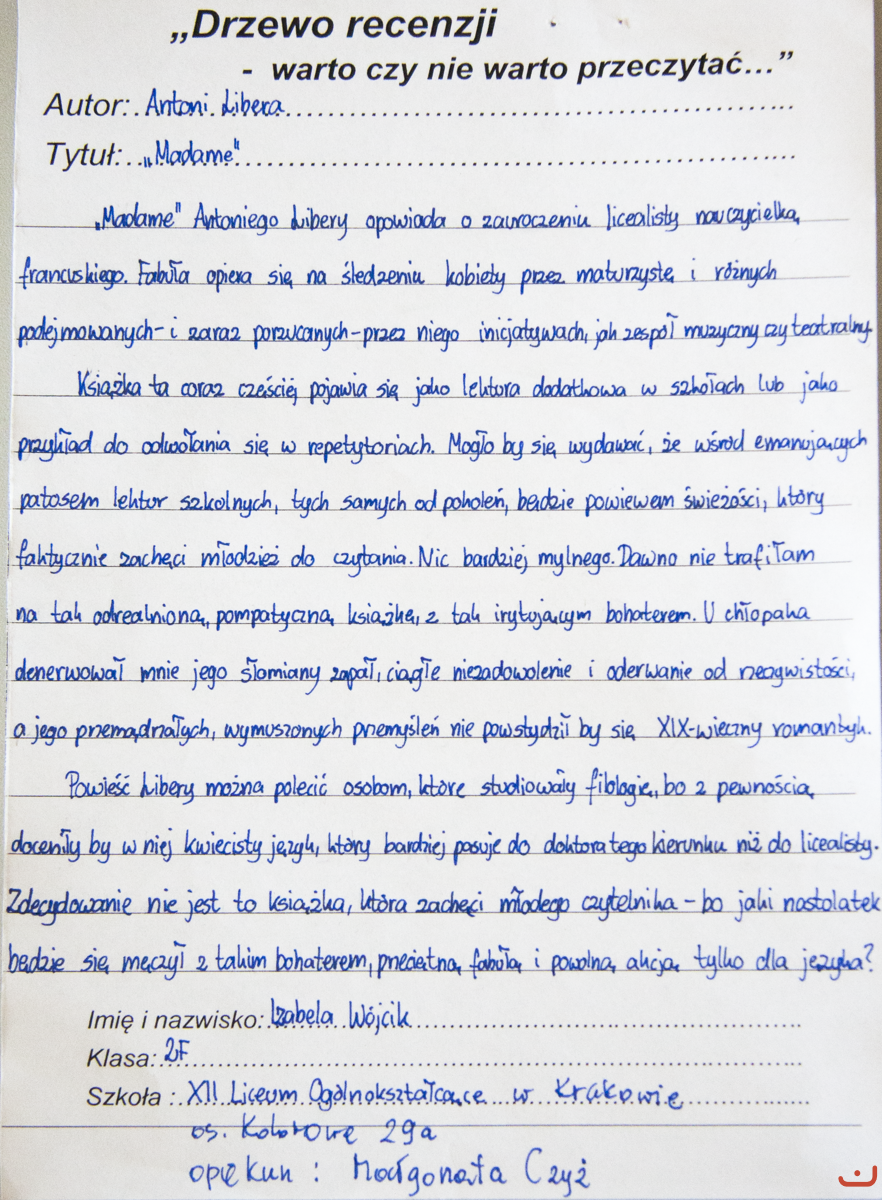 „Drzewo recenzji
- warto czy nie warto przeczytać...”
Autor: Antoni Libera
Tytuł: „Madame"
„Madame" Antoniego Libery opowiada o zauroczeniu licealisty nauczycielką
francuskiego. Fabuła opiera się na śledzeniu kobiety przez maturzystę i różnych
podejmowanych - i zaraz porzucanych - przez niego inicjatywach, jak zespół muzyczny czy teatralny.
Książka ta coraz cześciej pojawia się jako lektura dodatkowa w szkołach lub jako
przykład do odwołania się w repetytoriach. Mogło by się wydawać, że wśród emanujących
patosem lektur szkolnych, tych samych od pokoleń, będzie powiewem świeżości, który
faktycznie zachęci młodzież do czytania. Nic bardziej mylnego. Dawno nie trafiłam
na tak odrealnioną, pompatyczną książkę, z tak irytującym bohaterem. U chłopaka
denerwował mnie jego słomiany zapał, ciągłe niezadowolenie i oderwanie od rzeczywistości,
a jego przemądrzałych, wymuszonych przemyśleń nie powstydził by się XIX-wieczny romantyk.
Powieść Libery można polecić osobom, które studiowały filologię, bo z pewnością
doceniły by w niej kwiecisty język, który bardziej pasuje do doktora tego kierunku niż do licealisty.
Zdecydowanie nie jest to książka, która zachęci młodego czytelnika - bo jaki nastolatek
będzie się męczył z takim bohaterem, przeciętną fabułą i powolną akcją tylko dla języka?
Imię i nazwisko: Izabela Wójcik
Klasa: 2F
Szkoła : XII Liceum Ogólnokształcące w Krakowie
os. Kolorowe 29a
opiekun : Małgorzata Czyż